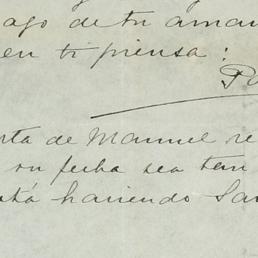 ago de tu aman
en ti piensa:
rta de Manuel re
su fecha sea tan
stá haciendo San